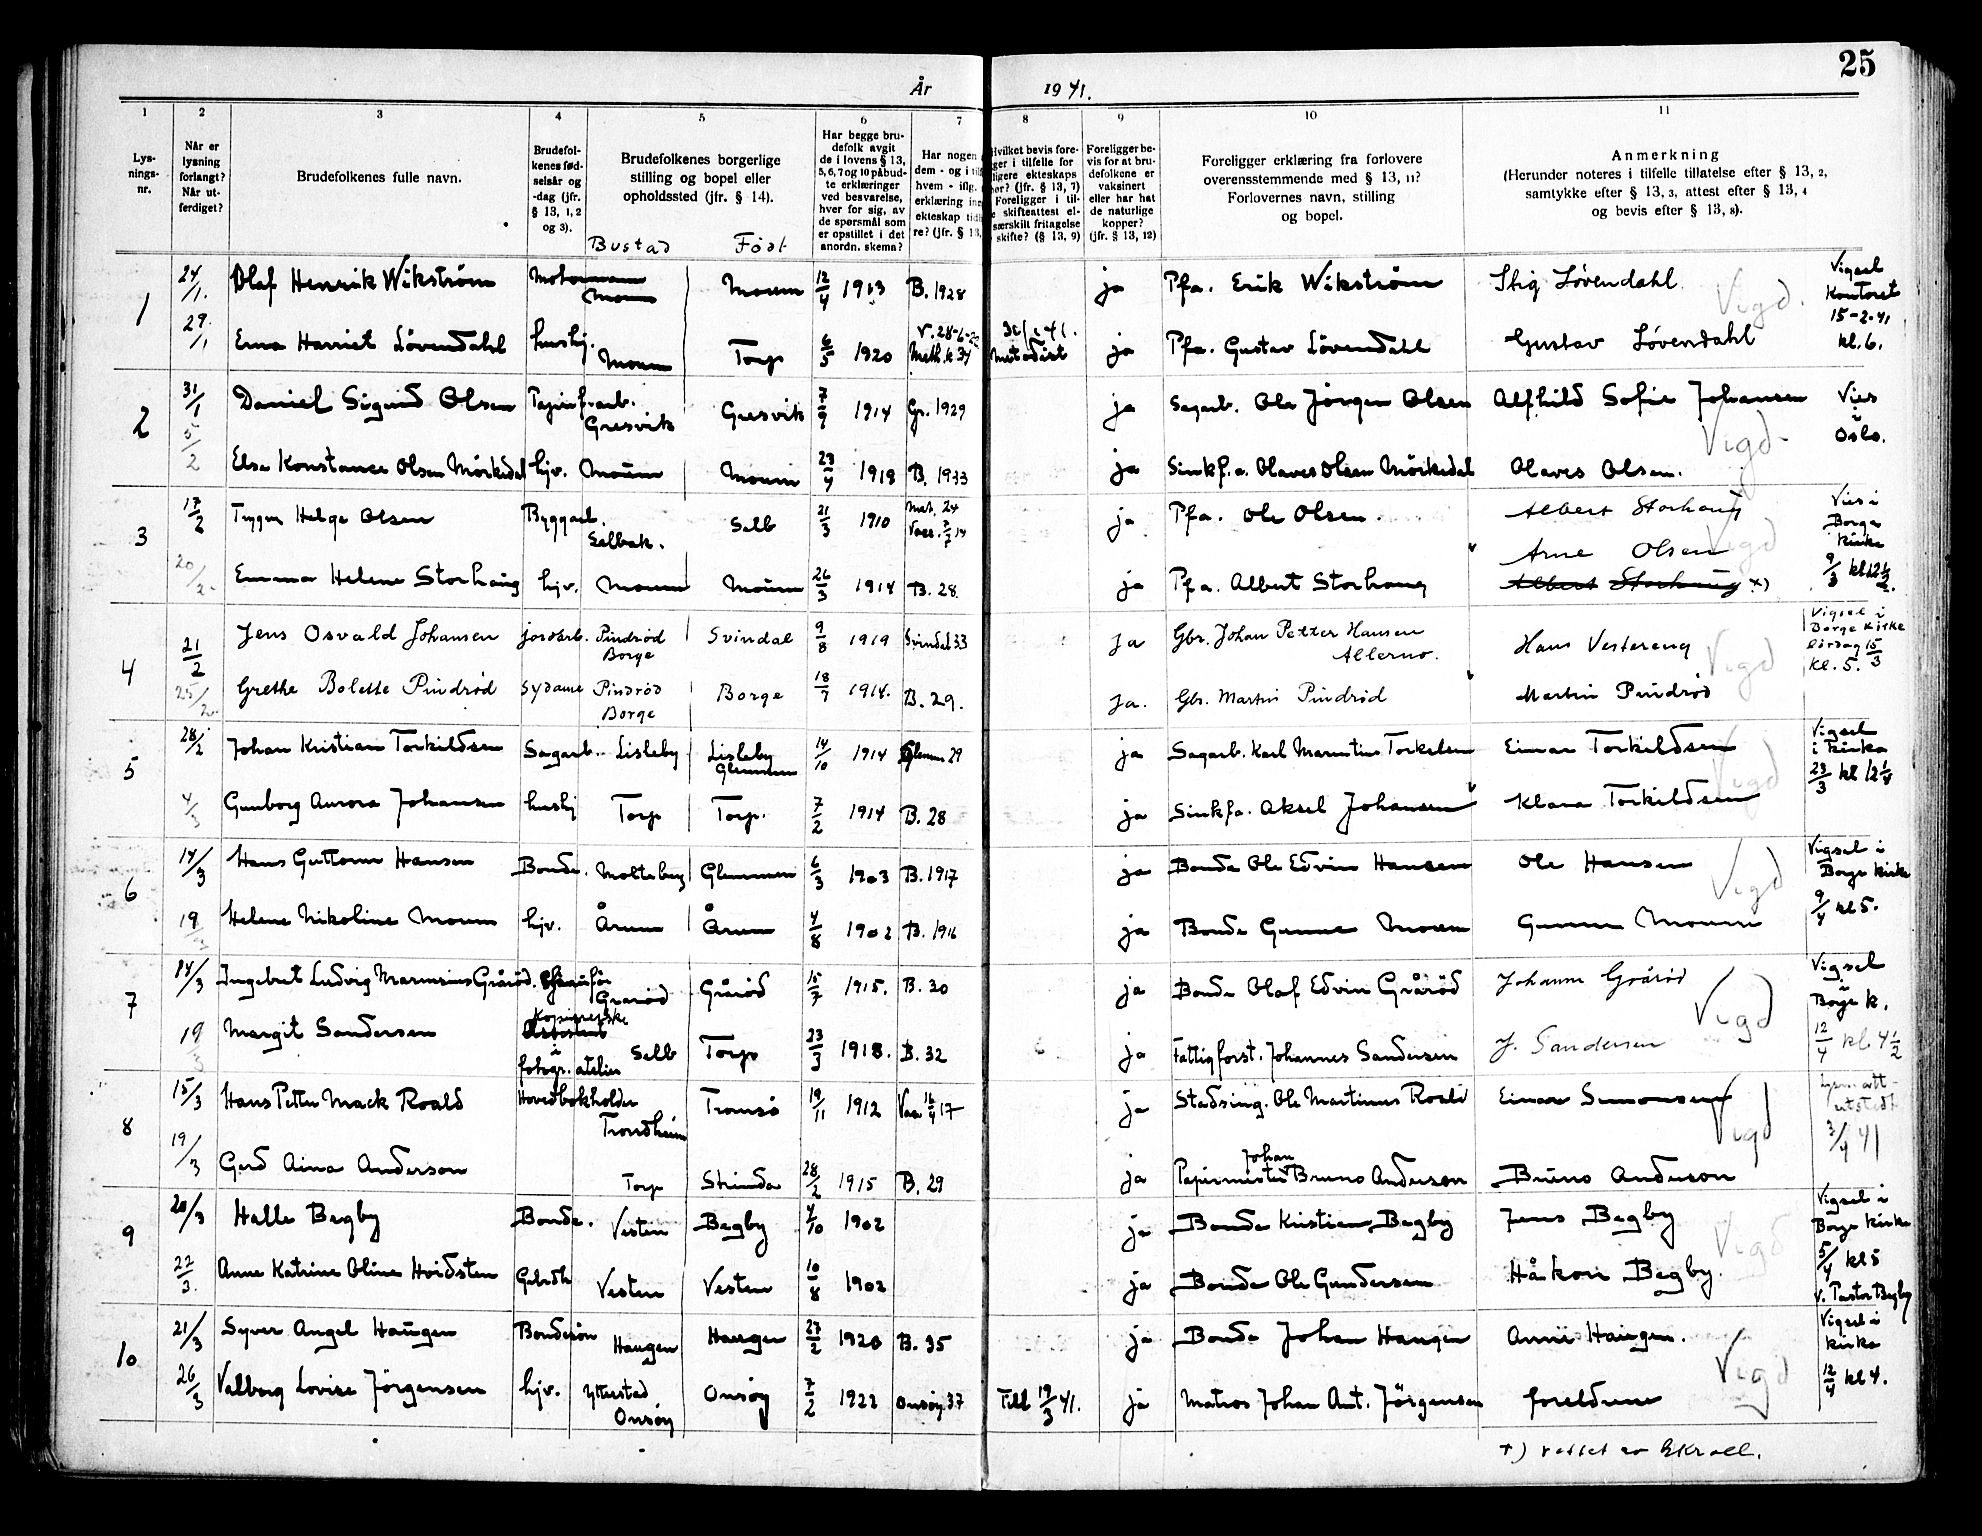 25
År 1941.
1 2 3 4 5 6 7 8 9 10 11
Lys-
nings-
nr.
Når er
lysning
forlangt?
Når ut-
ferdiget?
Brudefolkenes fulle navn.
Brudefol-
kenes fød-
selsår og
-dag (jfr.
§ 13, 1, 2
og 3).
Brudefolkenes borgerlige
stilling og bopel eller
opholdssted (jfr. § 14).
Bustad Født
Har begge bru-
defolk avgit
de i lovens § 13,
5, 6, 7 og 10 påbud-
te erklæringer
ved besvarelse,
hver for sig, av
de spørsmål som
er opstillet i det
anordn. skema?
Har nogen
dem - og i
hvem - iflg.
erklæring
ekteskap
re? (jfr. § 13,
Hvilket bevis fore-
ger i tilfelle for
ligere ekteskaps
hør? (jfr. § 13, 7)
Foreligger i til-
e skifteattest el-
særskilt fritagelse
skifte? (§ 13, 9)
Foreligger be-
vis for at bru-
defolkene er
vaksinert
eller har hat
de naturlige
kopper?
(jfr. § 13, 12)
Foreligger erklæring fra forlovere
overensstemmende med § 13, 11?
Forlovernes navn, stilling
og bopel.
Anmerkning
(Herunder noteres i tilfelle tillatelse efter § 13, 2,
samtykke efter § 13, 3, attest efter § 13, 4
og bevis efter § 13, 8).
1 24/1. Olaf Henrik Wikstrøm Moum Moum 12/4 1913 B. 1928 ja Pfa. Erik Wikstrøm Stig Lövendahl Vigd. Vigsel Kontoret 15-2-41 kl. 6.
29/1 Erna Harriet Lövendahl hushj. Moum Torp 6/5 1920 Meth.k 34 Metodist ja Pfa. Gustav Lövendahl Gustav Lövendahl
2 31/1 Daniel Sigurd Olsen Papirf.arb. Gresvik Gresvik 7/9 1914 Gr. 1929 ja Sagarb. Ole Jörgen Olsen Alfhild Sofie Johansen Vigd. Vies i Oslo.
5/2 Else Konstance Olsen Mörkedal hjv. Moum Moum 23/4 1918 B. 1933 ja Sinkf.a. Olaves Olsen Mörkedal Olaves Olsen.
3 17/2 Trygve Helge Olsen Byggarb. Selbak. Selb 21/3 1910 Vacc. 7/7 14 ja Pfa. Ole Olsen. Albert Storhaug Vigd Vies i Borge kirke 9/3 kl 12 1/2.
Arne Olsen
20/2. Emma Helene Storhaug hjv. Moum Moum 26/3 1914 B. 28 ja Pfa. Albert Storhaug Albert Storhaug x)
4 21/2 Jens Osvald Johansen jordarb. Pindrød Borge Svindal 9/8 1919 Svindal 33 ja Gbr. Johan Petter Hansen Allerno. Hans Vestereng Vigd Vigsel i Borge kirke lördag 15/3 kl. 5.
25/2. Grethe Bolette Pindrød Sydame Pindrød Borge Borge 18/7 1914. B. 29. ja. Gbr. Martin Pindrød Martin Pindrød
5 28/2 Johan Kristian Torkildsen Sagarb. Lisleby Lisleby Glemmen 14/10 1914 Glemm 29 ja Sagarb. Karl Marentius Torkelsen Einar Torkildsen Vigd Vigsel i kirka 23/3 kl 12 1/4
4/3 Gunborg Aurora Johansen hushj Torp Torp. 7/2 1914 B. 28 ja Sinkfa. Aksel Johansen Klara Torkildsen
6 14/3 Hans Guttorm Hansen Bonde. Molteberg Glemmen 6/3 1903 B. 1917 ja Bonde Ole Edvin Hansen Ole Hansen Vigd Vigsel i Borge kirke 9/4 kl 5.
19 Helene Nikoline Moum hjv. Årum Årum 4/8 1902 B. 1916 ja Bonde Gunnar Moum Gunnar Moum
7 14/3 Ingebret Ludvig Marensius Grårød. Chaufför Grårød Gråröd 15/7 1915. B. 30 ja Bonde Olaf Edvin Gråröd Johanne Grårød Vigd Vigsel i Borge k. 12/4 kl. 4 1/2
19/3 Margit Sandersen Kopinepske i fotogr. atelier Selb Torp 23/3 1918. B. 32 ja Fattigforst. Johannes Sandersen J. Sandersen
8 15/3 Hans Petter Mack Roald Hovedbokholder Trondheim Tromsø 19/11 1912 Vaa 16/9 17 ja Stadsing. Ole Martinus Roald Einar Simonsen Vigd Lysn.att. utstedt 3/4 41
19/3 Gerd Aina Anderson Torp Strinda 28/2 1915 B. 29 ja Papirmester Johan Bruno Anderson Bruno Anderson
9 20/3 Halle Begby Bonde. Vesten Begby 4/10 1902 ja Bonde Kristian Begby Jens Begby Vigd Vigsel i Borge kirke 5/4 kl 5 v. Pastor Begby
22/3. Anne Katrine Oline Hvidsten Gbrdtr Vesten Vesten 10/8 1902 ja Bonde Ole Gundersen Håkon Begby.
10 21/3 Syver Angel Haugen Bondesøn Haugen Haugen 27/2 1920 B. 35 ja Bonde Johan Haugen Anne Haugen. Vigd Vigsel i kirka 12/4 kl 4.
26/3 Valborg Lovise Jörgensen hjv. Ytterstad Onsøy Onsøy 7/2 1922 Onsøy. 37 Till 19/3 41. ja Matros Johan Ant. Jörgensen foreldrene
x) rettet av EKroll.